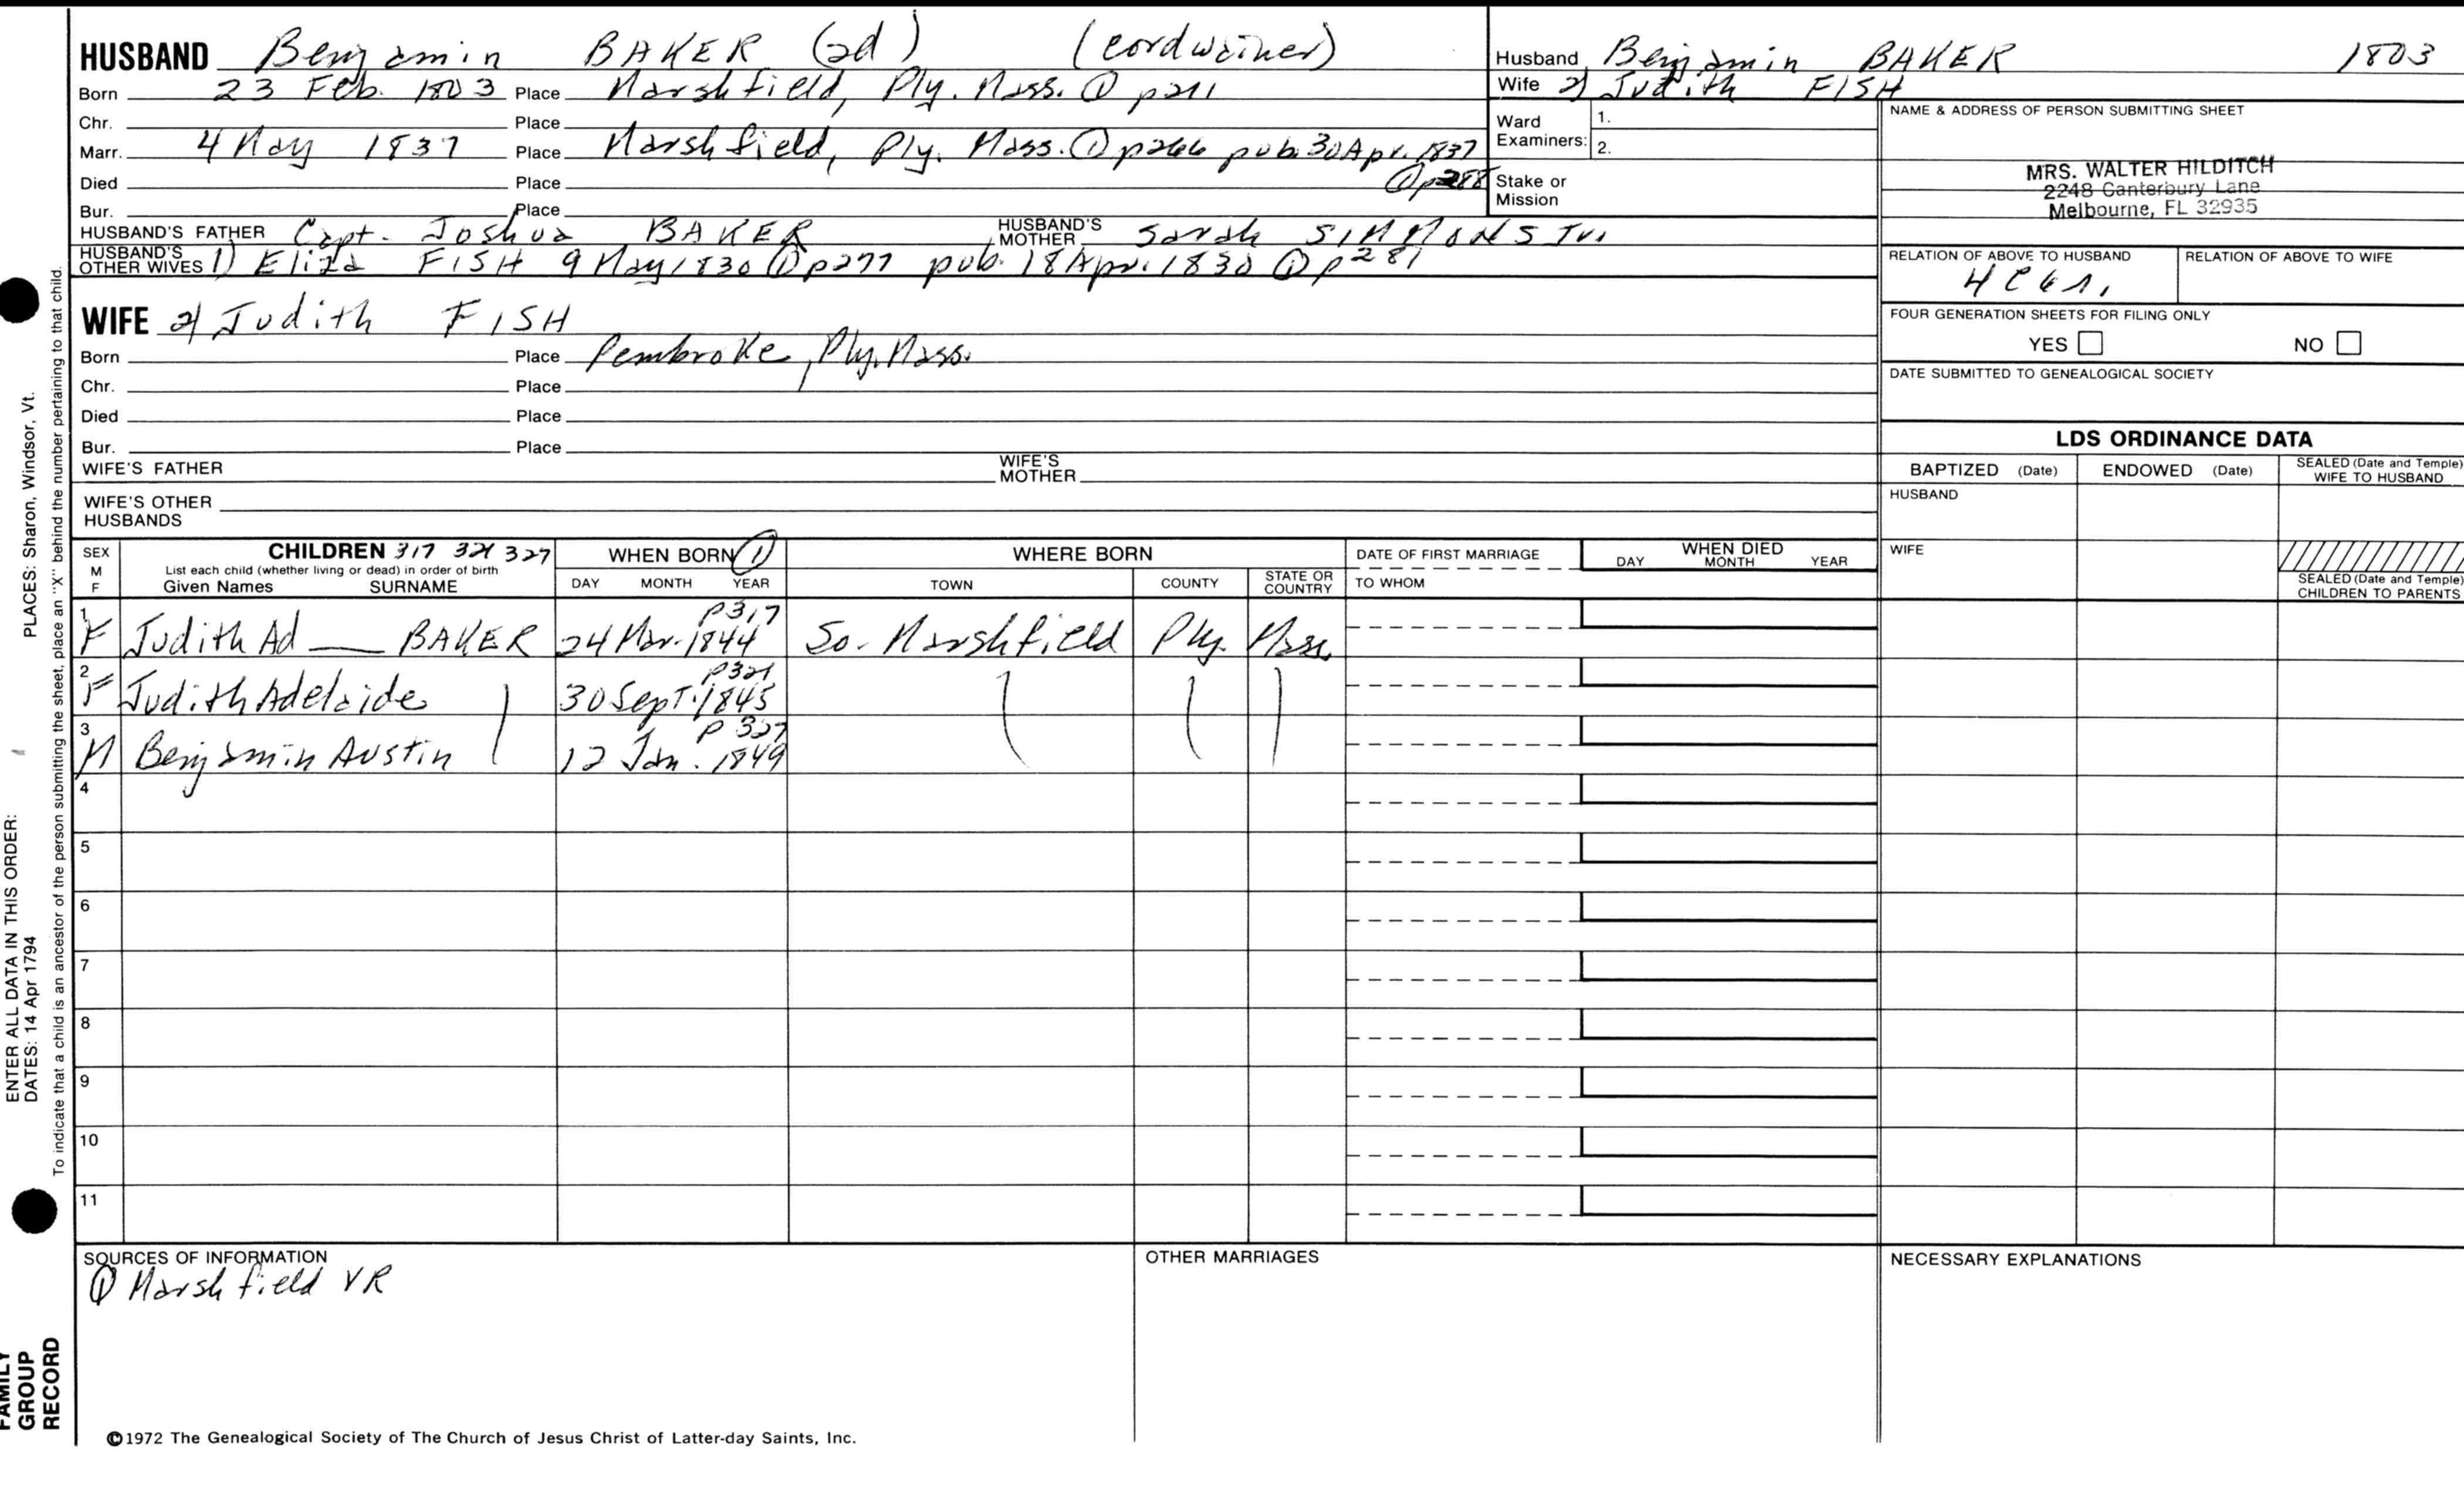 HUSBAND Benjamin BAKER (2d) (cordwainer)
Born 23 Feb. 1803 Place Marshfield, Ply. Mass. ① p211
Chr. Place
Marr. 4 May 1837 Place Marshfield, Ply. Mass. ① p266 pub. 30 Apr. 1837
① p288
Died Place
Bur. Place
HUSBAND'S FATHER Capt. Joshua BAKER HUSBAND'S MOTHER Sarah SIMMONS
HUSBAND'S OTHER WIVES 1) Eliza FISH 9 May 1830 ① p277 pub. 18 Apr. 1830 ① p281
WIFE 2) Judith FISH
Born Place Pembroke, Ply. Mass.
Chr. Place
Died Place
Bur. Place
WIFE'S FATHER WIFE'S MOTHER
WIFE'S OTHER HUSBANDS
Husband Benjamin BAKER 1803
Wife 2) Judith FISH
Ward Examiners: 1.
2.
Stake or Mission
NAME & ADDRESS OF PERSON SUBMITTING SHEET
MRS. WALTER HILDITCH
2248 Canterbury Lane
Melbourne, FL 32935
RELATION OF ABOVE TO HUSBAND RELATION OF ABOVE TO WIFE
FOUR GENERATION SHEETS FOR FILING ONLY
YES NO
DATE SUBMITTED TO GENEALOGICAL SOCIETY
LDS ORDINANCE DATA
BAPTIZED (Date) ENDOWED (Date) SEALED (Date and Temple) WIFE TO HUSBAND
HUSBAND
WIFE
SEALED (Date and Temple) CHILDREN TO PARENTS
SEX M F
CHILDREN 317 321 327
List each child (whether living or dead) in order of birth
Given Names SURNAME
WHEN BORN ①
DAY MONTH YEAR
WHERE BORN
TOWN COUNTY STATE OR COUNTRY
DATE OF FIRST MARRIAGE
TO WHOM
WHEN DIED
DAY MONTH YEAR
p317
1 F Judith Ad ___ BAKER 24 Mar. 1844 So. Marshfield Ply. Mass.
p321
2 F Judith Adelaide 30 Sept. 1845
p 327
3 M Benjamin Austin 12 Jan. 1849
4
5
6
7
8
9
10
11
SOURCES OF INFORMATION
① Marshfield VR
OTHER MARRIAGES
NECESSARY EXPLANATIONS
©1972 The Genealogical Society of The Church of Jesus Christ of Latter-day Saints, Inc.
PLACES: Sharon, Windsor, Vt.
ENTER ALL DATA IN THIS ORDER:
DATES: 14 Apr 1794
To indicate that a child is an ancestor of the person submitting the sheet, place an "X" behind the number pertaining to that child.
FAMILY
GROUP
RECORD